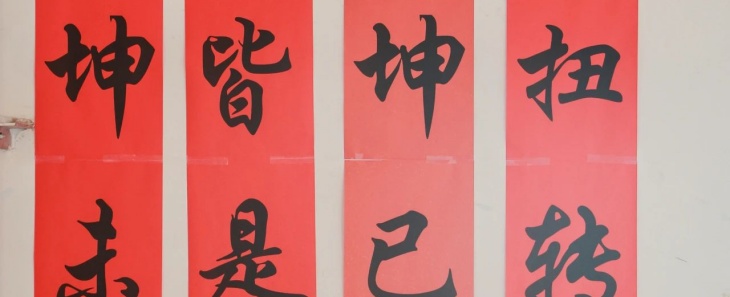 坤未
皆是
坤已
扭转